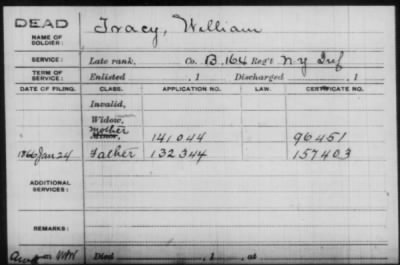 DEAD
NAME OF SOLDIER: Tracy, William
SERVICE: Late rank, Co. B, 164 Reg't N.Y. Inf
TERM OF SERVICE: Enlisted , 1 Discharged , 1
DATE OF FILING. CLASS. APPLICATION NO. LAW. CERTIFICATE NO.
Invalid,
Widow,
Mother
Minor, 141044 96451
1866 Jan 24 Father 132344 157403
ADDITIONAL SERVICES:
REMARKS:
Died , 1 , at